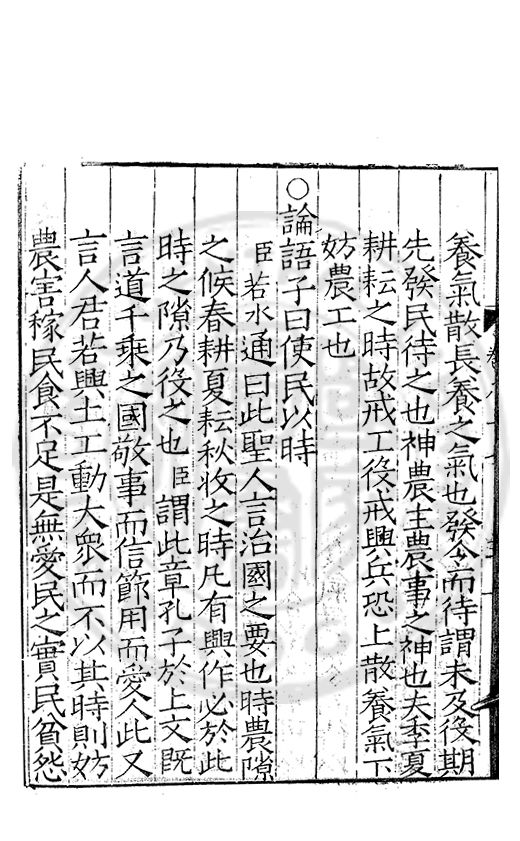 養氣散長養之氣也發令而待謂未及役期
先發民待之也神農主農事之神也夫季夏
耕耘之時故戒工役戒興兵恐上散養氣下
妨農工也
○論語子曰使民以時
臣若水通曰此聖人言治國之要也時農隙
之候春耕夏耘秋收之時凡有興作必於此
時之隙乃役之也臣謂此章孔子於上文既
言道千乗之國敬事而信節用而愛人此又
言人君若興土工動大衆而不以其時則妨
農害稼民食不足是無愛民之實民貧怨